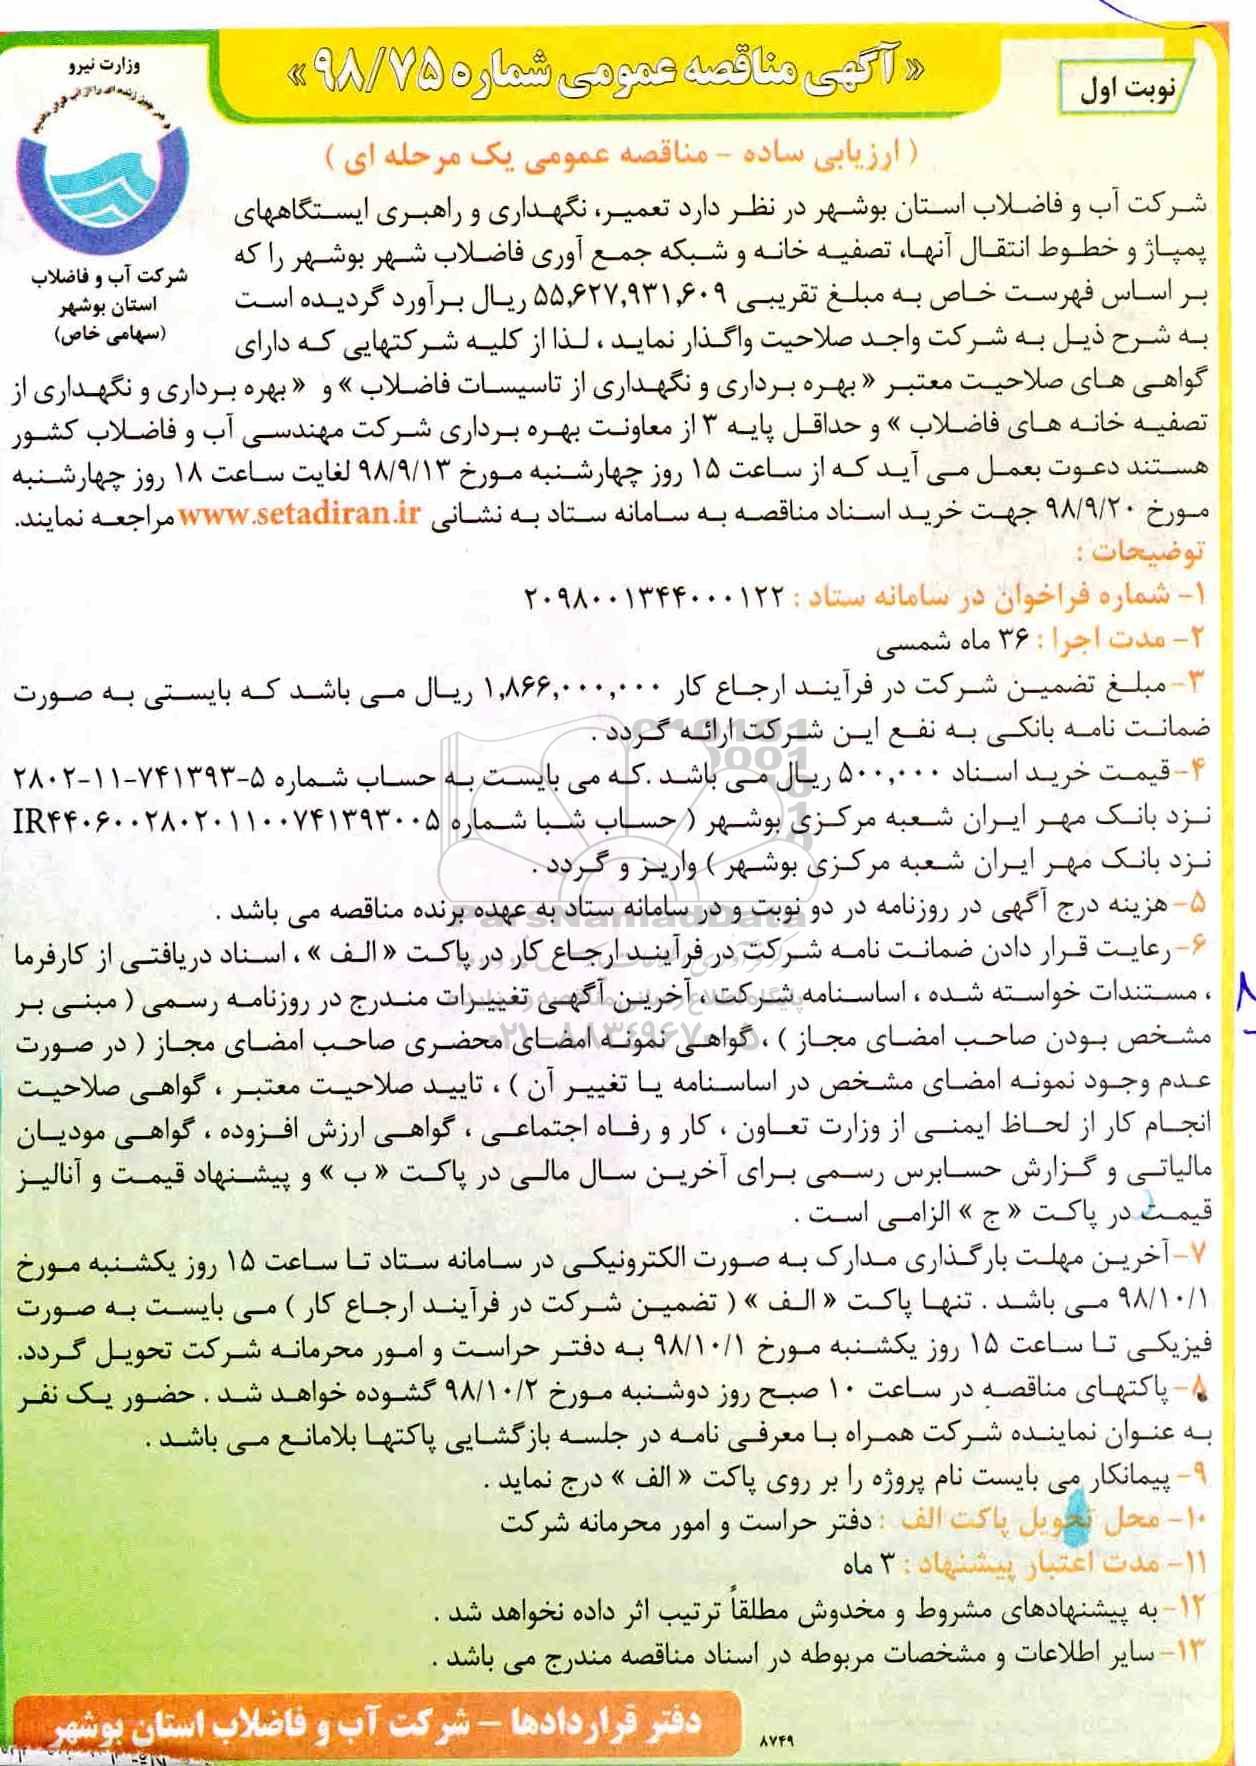 « آگهی مناقصه عمومی شماره ۹۸/۷۵ »
نوبت اول
وزارت نیرو
شرکت آب و فاضلاب
استان بوشهر
(سهامی خاص)
( ارزیابی ساده - مناقصه عمومی یک مرحله ای )
شرکت آب و فاضلاب استان بوشهر در نظر دارد تعمیر، نگهداری و راهبری ایستگاههای
پمپاژ و خطوط انتقال آنها، تصفیه خانه و شبکه جمع آوری فاضلاب شهر بوشهر را که
بر اساس فهرست خاص به مبلغ تقریبی ۵۵,۶۲۷,۹۳۱,۶۰۹ ریال برآورد گردیده است
به شرح ذیل به شرکت واجد صلاحیت واگذار نماید ، لذا از کلیه شرکتهایی که دارای
گواهی های صلاحیت معتبر « بهره برداری و نگهداری از تاسیسات فاضلاب » و « بهره برداری و نگهداری از
تصفیه خانه های فاضلاب » و حداقل پایه ۳ از معاونت بهره برداری شرکت مهندسی آب و فاضلاب کشور
هستند دعوت بعمل می آید که از ساعت ۱۵ روز چهارشنبه مورخ ۹۸/۹/۱۳ لغایت ساعت ۱۸ روز چهارشنبه
مورخ ۹۸/۹/۲۰ جهت خرید اسناد مناقصه به سامانه ستاد به نشانی www.setadiran.ir مراجعه نمایند.
توضیحات :
۱- شماره فراخوان در سامانه ستاد : ۲۰۹۸۰۰۱۳۴۴۰۰۰۱۲۲
۲- مدت اجرا : ۳۶ ماه شمسی
۳- مبلغ تضمین شرکت در فرآیند ارجاع کار ۱,۸۶۶,۰۰۰,۰۰۰ ریال می باشد که بایستی به صورت
ضمانت نامه بانکی به نفع این شرکت ارائه گردد .
۴- قیمت خرید اسناد ۵۰۰,۰۰۰ ریال می باشد .که می بایست به حساب شماره ۵-۷۴۱۳۹۳-۱۱-۲۸۰۲
نزد بانک مهر ایران شعبه مرکزی بوشهر ( حساب شبا شماره IR۴۴۰۶۰۰۲۸۰۲۰۱۱۰۰۷۴۱۳۹۳۰۰۵
نزد بانک مهر ایران شعبه مرکزی بوشهر ) واریز و گردد .
۵- هزینه درج آگهی در روزنامه در دو نوبت و در سامانه ستاد به عهده برنده مناقصه می باشد .
۶- رعایت قرار دادن ضمانت نامه شرکت در فرآیند ارجاع کار در پاکت « الف » ، اسناد دریافتی از کارفرما
، مستندات خواسته شده ، اساسنامه شرکت ، آخرین آگهی تغییرات مندرج در روزنامه رسمی ( مبنی بر
مشخص بودن صاحب امضای مجاز ) ، گواهی نمونه امضای محضری صاحب امضای مجاز ( در صورت
عدم وجود نمونه امضای مشخص در اساسنامه یا تغییر آن ) ، تایید صلاحیت معتبر ، گواهی صلاحیت
انجام کار از لحاظ ایمنی از وزارت تعاون ، کار و رفاه اجتماعی ، گواهی ارزش افزوده ، گواهی مودیان
مالیاتی و گزارش حسابرس رسمی برای آخرین سال مالی در پاکت « ب » و پیشنهاد قیمت و آنالیز
قیمت در پاکت « ج » الزامی است .
۷- آخرین مهلت بارگذاری مدارک به صورت الکترونیکی در سامانه ستاد تا ساعت ۱۵ روز یکشنبه مورخ
۹۸/۱۰/۱ می باشد . تنها پاکت « الف » ( تضمین شرکت در فرآیند ارجاع کار ) می بایست به صورت
فیزیکی تا ساعت ۱۵ روز یکشنبه مورخ ۹۸/۱۰/۱ به دفتر حراست و امور محرمانه شرکت تحویل گردد.
۸- پاکتهای مناقصه در ساعت ۱۰ صبح روز دوشنبه مورخ ۹۸/۱۰/۲ گشوده خواهد شد . حضور یک نفر
به عنوان نماینده شرکت همراه با معرفی نامه در جلسه بازگشایی پاکتها بلامانع می باشد .
۹- پیمانکار می بایست نام پروژه را بر روی پاکت « الف » درج نماید .
۱۰- محل تحویل پاکت الف : دفتر حراست و امور محرمانه شرکت
۱۱- مدت اعتبار پیشنهاد : ۳ ماه
۱۲- به پیشنهادهای مشروط و مخدوش مطلقاً ترتیب اثر داده نخواهد شد .
۱۳- سایر اطلاعات و مشخصات مربوطه در اسناد مناقصه مندرج می باشد .
دفتر قراردادها - شرکت آب و فاضلاب استان بوشهر
۸۷۴۹
ParsNamadData